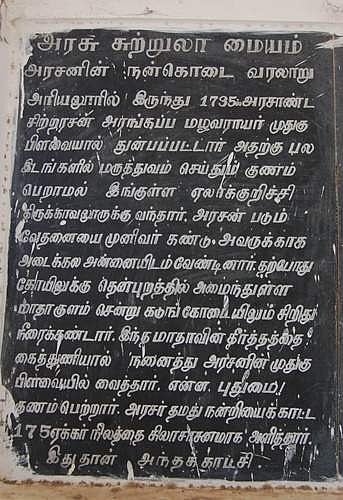 அரசு சுற்றுலா மையம்
அரசனின் நன்கொடை வரலாறு
அரியலூரில் இருந்து 1735ல் அரசாண்ட
சிற்றரசன் அரங்கப்ப மழவராயர் முதுகு
பிளவையால் துன்பப்பட்டார் அதற்கு பல
இடங்களில் மருத்துவம் செய்தும் குணம்
பெறாமல் இங்குள்ள ஏலாக்குறிச்சி
திருக்காவலூருக்கு வந்தார். அரசன் படும்
வேதனையை முனிவர் கண்டு, அவருக்காக
அடைக்கல அன்னையிடம் வேண்டினார். தற்போது
கோயிலுக்கு தென்புறத்தில் அமைந்துள்ள
மாதாகுளம் சென்று கடுங் கோடையிலும் சிறிது
நீரைக்கண்டார். இந்த மாதாவின் தீர்த்தத்தை
கைத்துணியால் நனைத்து அரசனின் முதுகு
பிளவையில் வைத்தார். என்ன புதுமை!
குணம் பெற்றார். அரசர் தமது நன்றியைக்காட்ட
175 ஏக்கர் நிலத்தை சிலாசாசனமாக அளித்தார்.
இதுதான் அந்தக்காட்சி.